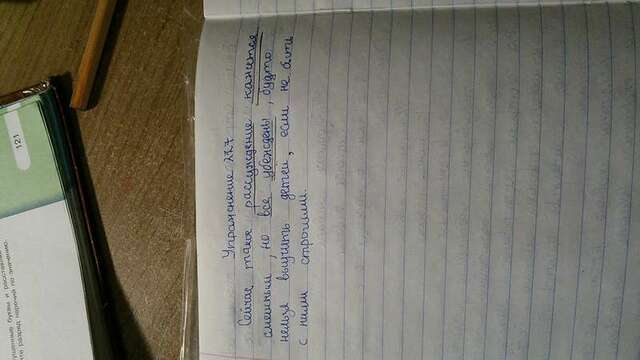 пущенные буквы и расставляя
те разряд наречий по значению.
121
Упражнение 227
Сейчас такое рассуждение кажется
смешным, но все убеждены, будто
нельзя выучить детей, если не быть
с ними строгими.